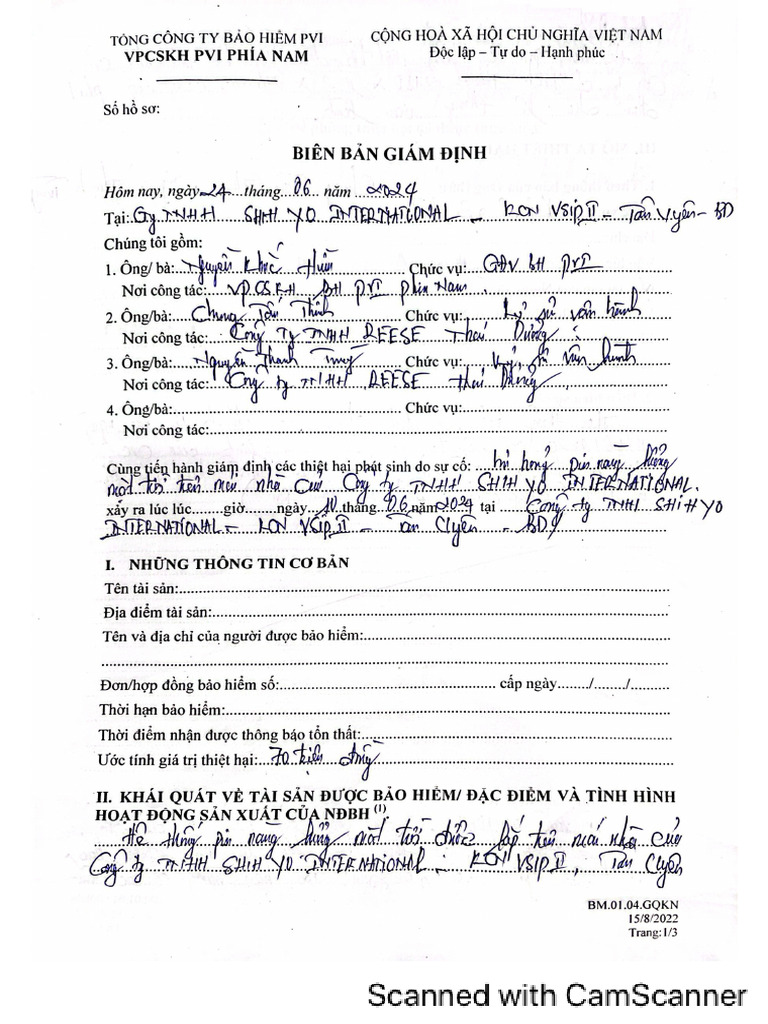 TỔNG CÔNG TY BẢO HIỂM PVI
VPCSKH PVI PHÍA NAM
CỘNG HOÀ XÃ HỘI CHỦ NGHĨA VIỆT NAM
Độc lập – Tự do – Hạnh phúc
Số hồ sơ:
BIÊN BẢN GIÁM ĐỊNH
Hôm nay, ngày 24 tháng 06 năm 2024
Tại: Cty TNHH SHIH YO INTERNATIONAL - KCN VSIP II - Tân Uyên - BD
Chúng tôi gồm:
1. Ông/ bà: Nguyễn Khắc Chức vụ: GĐV BH PVI
Nơi công tác: VPCSKH BH PVI Phía Nam
2. Ông/bà: Chung Tấn Thịnh Chức vụ: Kỹ sư vận hành
Nơi công tác: Công Ty TNHH REESE Thái Dương
3. Ông/bà: Nguyễn Thanh Chức vụ: Kỹ sư vận hành
Nơi công tác: Công ty TNHH REESE Thái Dương
4. Ông/bà: Chức vụ:
Nơi công tác:
Cùng tiến hành giám định các thiệt hại phát sinh do sự cố: hư hỏng pin năng lượng
mặt trời trên mái nhà của Công ty TNHH SHIH YO INTERNATIONAL.
xảy ra lúc lúc giờ ngày 10 tháng 06 năm 2024 tại Công ty TNHH SHIH YO
INTERNATIONAL - KCN VSIP II - Tân Uyên - BD
I. NHỮNG THÔNG TIN CƠ BẢN
Tên tài sản:
Địa điểm tài sản:
Tên và địa chỉ của người được bảo hiểm:
Đơn/hợp đồng bảo hiểm số: cấp ngày / /
Thời hạn bảo hiểm:
Thời điểm nhận được thông báo tổn thất:
Ước tính giá trị thiệt hại: 70 triệu đồng
II. KHÁI QUÁT VỀ TÀI SẢN ĐƯỢC BẢO HIỂM/ ĐẶC ĐIỂM VÀ TÌNH HÌNH
HOẠT ĐỘNG SẢN XUẤT CỦA NĐBH (1)
Hệ thống pin năng lượng mặt trời được lắp trên mái nhà của
Công ty TNHH SHIH YO INTERNATIONAL - KCN VSIP II, Tân Uyên
BM.01.04.GQKN
15/8/2022
Trang:1/3
Scanned with CamScanner